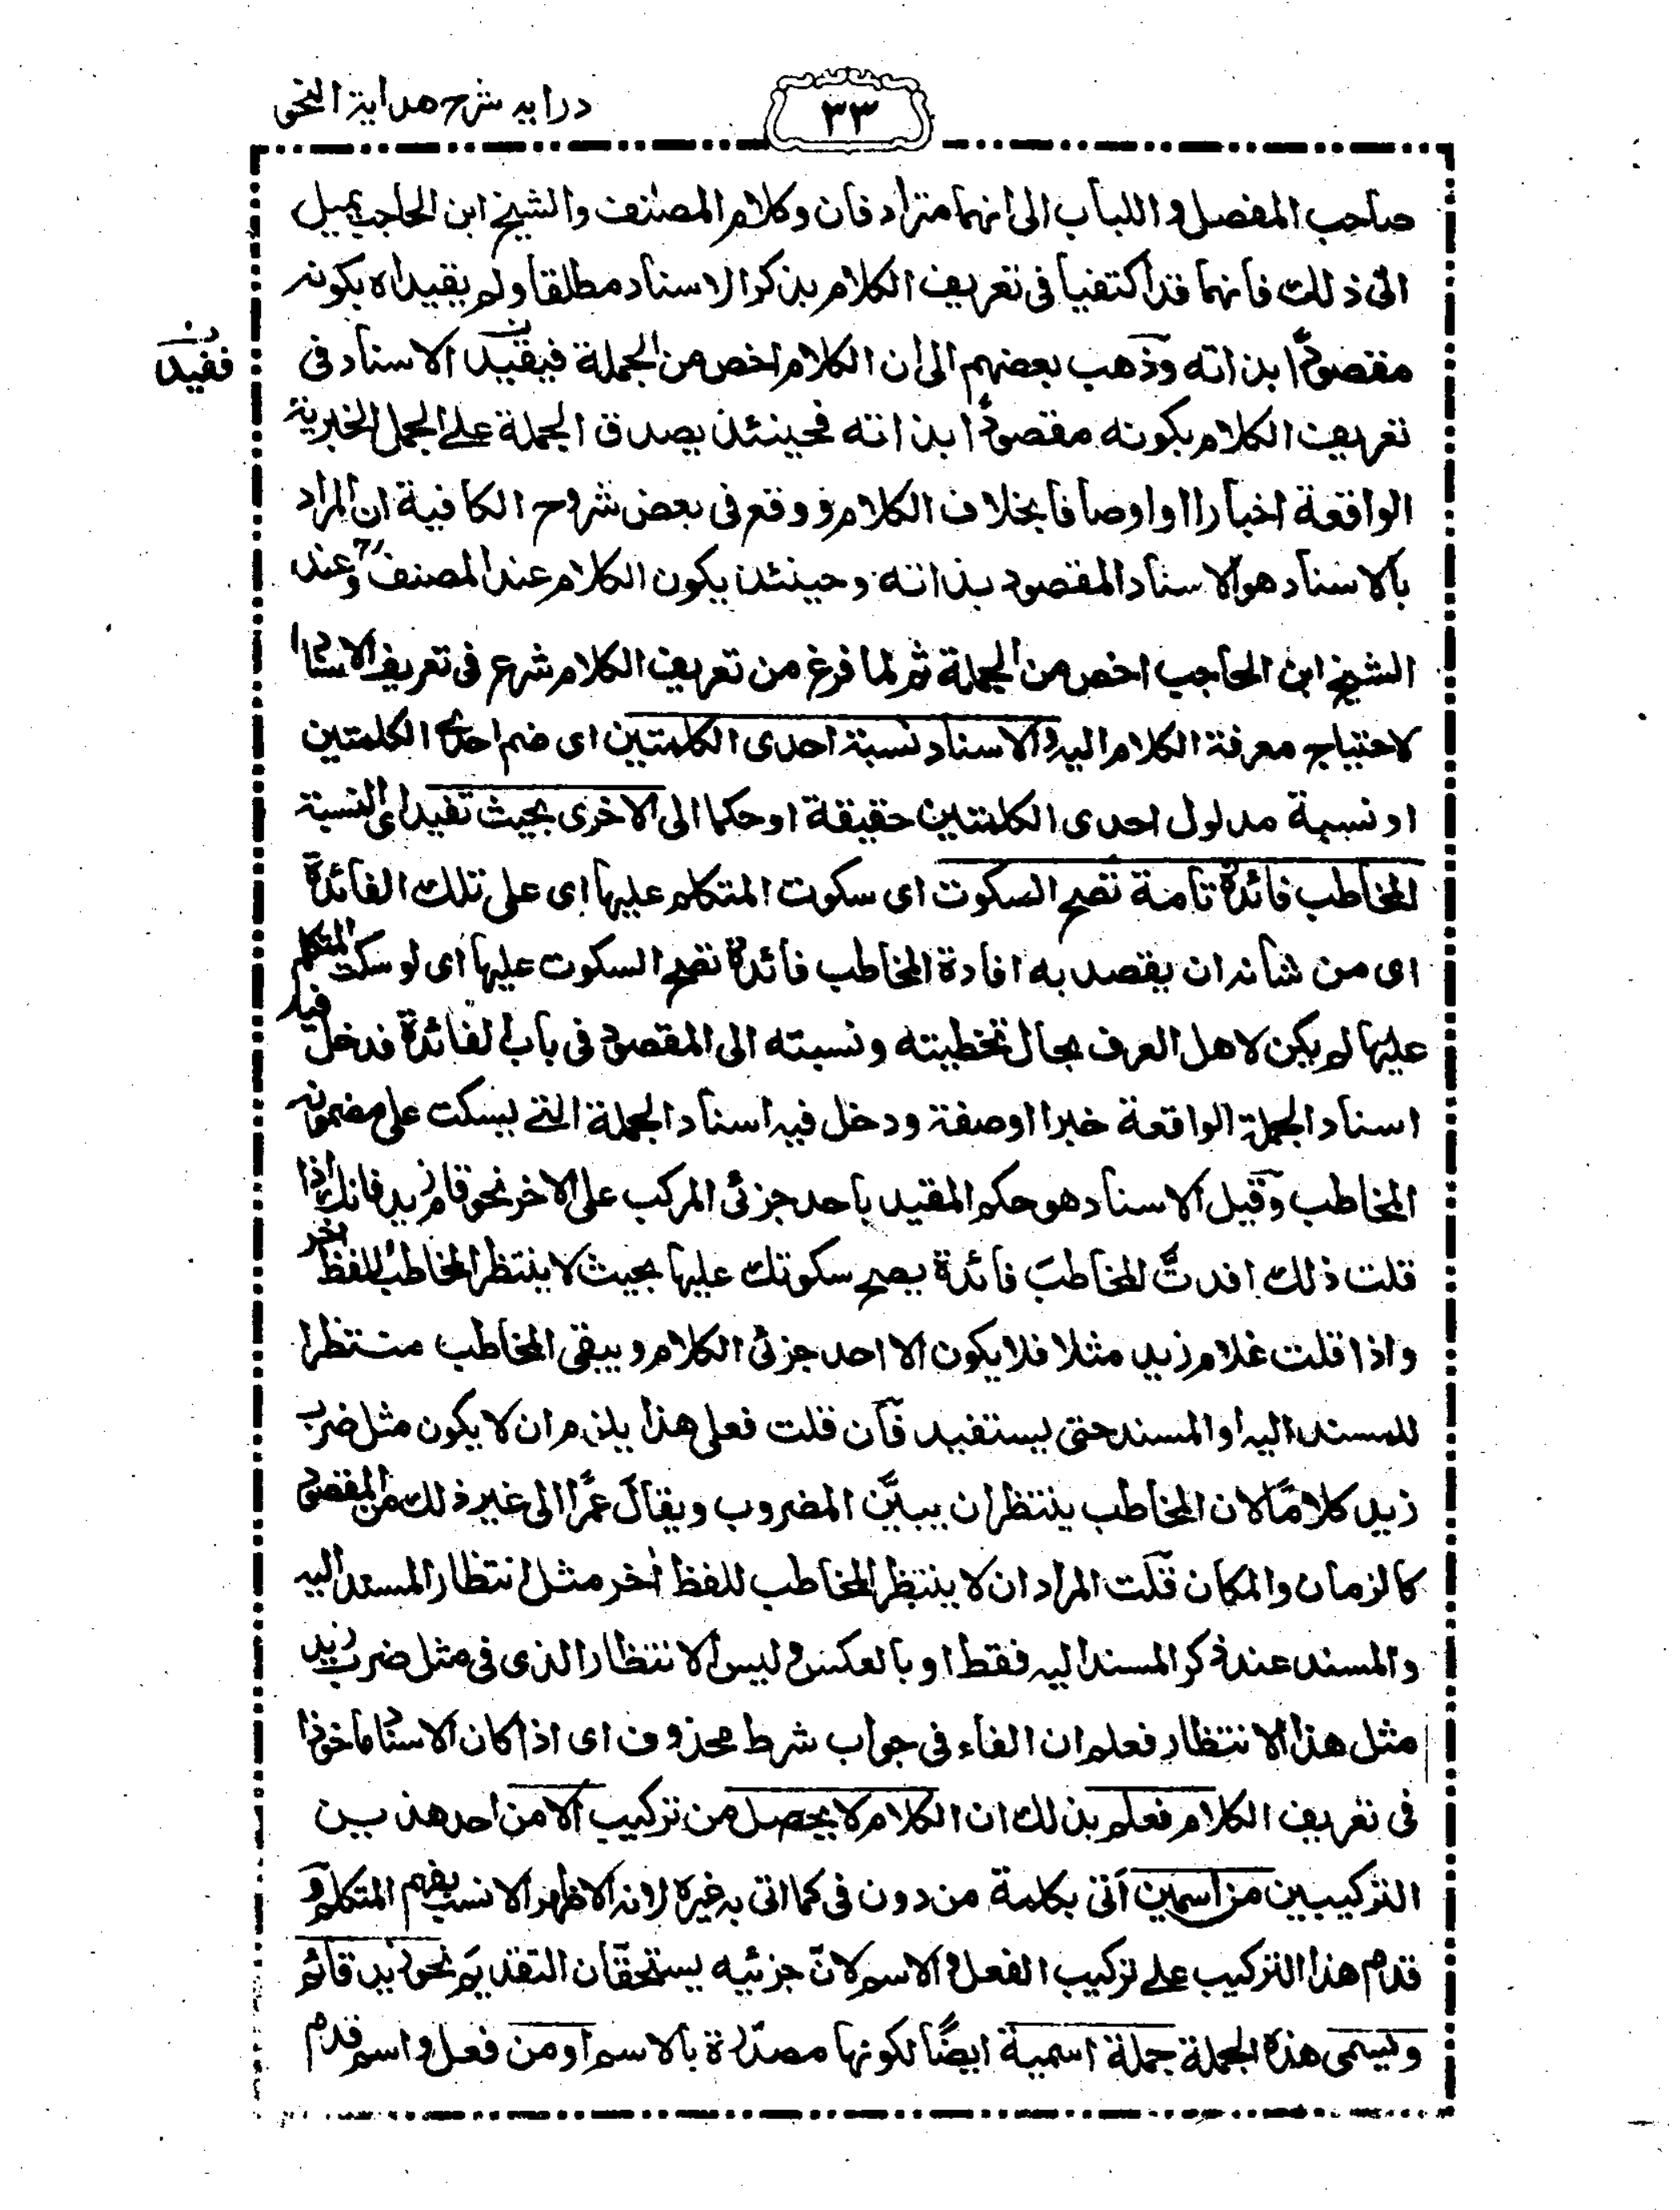 درایه شرح هدایة النحو
٣٣
صاحب المفصل و اللباب الى انهما مترادفان وكلام المصنف والشيخ ابن الحاجب يميل
الى ذلك فانهما قد اكتفيا فى تعريف الكلام بذكر الاسناد مطلقا ولم يقيداه بكونه
مقصودًا بذاته وذهب بعضهم الى ان الكلام اخص من الجملة فيقيد الاسناد فى
فقيد
تعريف الكلام بكونه مقصودًا بذاته فحينئذ يصدق الجملة على الجمل الخبرية
الواقعة اخبارا او اوصافا بخلاف الكلام ووقع فى بعض شروح الكافية ان المراد
بالاسناد هو الاسناد المقصود بذاته وحينئذ يكون الكلام عند المصنف وعند
الشيخ ابن الحاجب اخص من الجملة ثم لما فرغ من تعريف الكلام شرع فى تعريف الاسناد
لاحتياج معرفة الكلام اليه والاسناد نسبة احدى الكلمتين اى ضم احدى الكلمتين
او نسبة مدلول احدى الكلمتين حقيقة او حكما الى الاخرى بحيث تفيد اى النسبة
المخاطب فائدة تامة تصح السكوت اى سكوت المتكلم عليها اى على تلك الفائدة
اى من شانه ان يقصد به افادة المخاطب فائدة تصح السكوت عليها اى لو سكت المتكلم
عليها لم يكن لاهل العرف مجال تخطيته ونسبته الى المقصود فى باب الفائدة فدخل فيه
اسناد الجملة الواقعة خبرا او صفة ودخل فيه اسناد الجملة التى يسكت على مضمونه
المخاطب وقيل الاسناد هو حكم المقيد باحد جزئى المركب على الاخر نحو قام زيد فانك اذا
قلت ذلك افدتَّ المخاطبَ فائدة يصح سكوتك عليها بحيث لا ينتظر المخاطب للفظ اخر
واذا قلت غلام زيد مثلا فلا يكون الا احد جزئى الكلام ويبقى المخاطب منتظرا
للمسند اليه او المسند حتى يستفيد فان قلت فعلى هذا يلزم ان لا يكون مثل ضرب
زيد كلامًا لان المخاطب ينتظر ان يبيَّن المضروب ويقال عمرًا الى غير ذلك من المقصود
كالزمان والمكان قلت المراد ان لا ينتظر المخاطب للفظ اٰخر مثل انتظار المسند اليه
والمسند عند ذكر المسند اليه فقط او بالعكس و ليس الانتظار الذى فى مثل ضرب زيد
مثل هذا الانتظار فعلم ان الفاء فى جواب شرط محذوف اى اذا كان الاسناد ماخوذا
فى تعريف الكلام فعلم بذلك ان الكلام لا يحصل من تركيب الا من احد هذين
التركيبين من اسمين اتى بكلمة من دون فى كما اتى به غيره لانه الاظهر الانسب بفهم المتكلم و
قدم هذا التركيب على تركيب الفعل و الاسم لانّ جزئيه يستحقان التقديم نحو زيد قائم
وتسمى هذه الجملة جملة اسمية ايضًا لكونها مصدّرة بالاسم او من فعل و اسم قدم